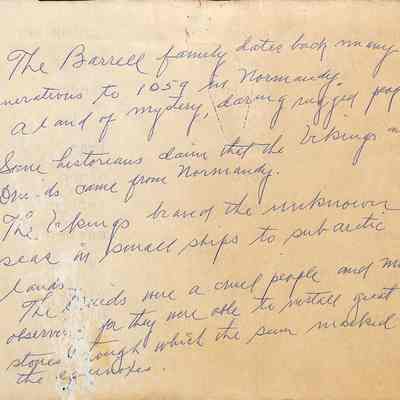 The Barrell family dates back many
nerations to 1059 in Normandy.
A land of mystery, daring rugged peop
Some historians claim that the Vikings an
Druids came from Normandy.
The Vikings braved the unknown
seas in small ships to subarctic
lands.
The Druids were a cruel people and
observ for they were able to install great
stones through which the sun marked
the equinoxes.